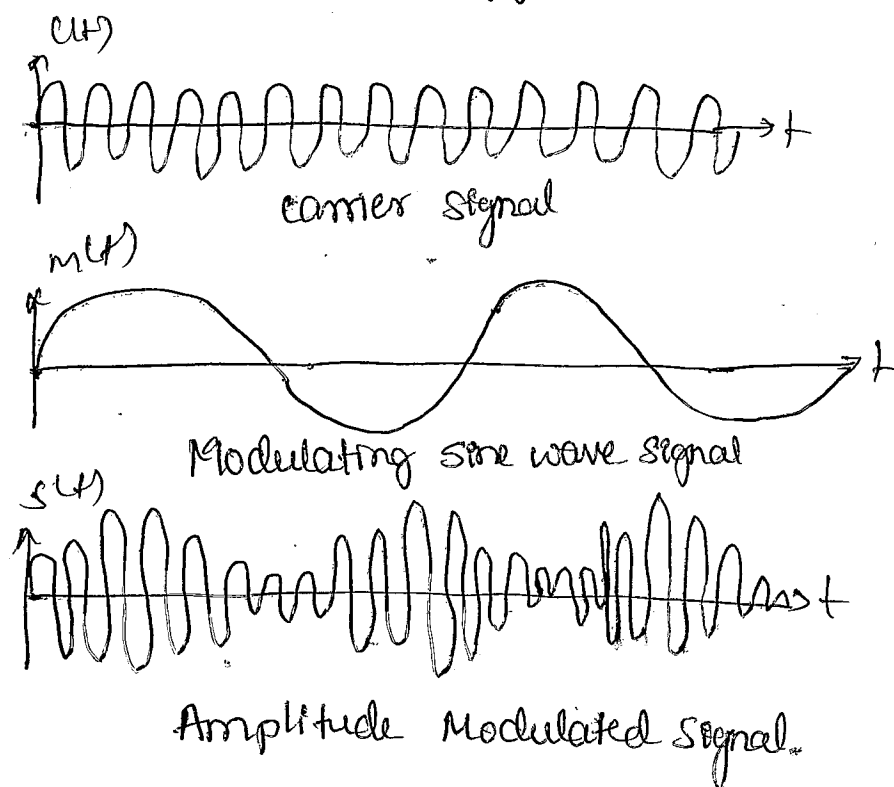 C(t)
t
carrier signal
m(t)
t
Modulating sine wave signal
s(t)
t
Amplitude Modulated signal.